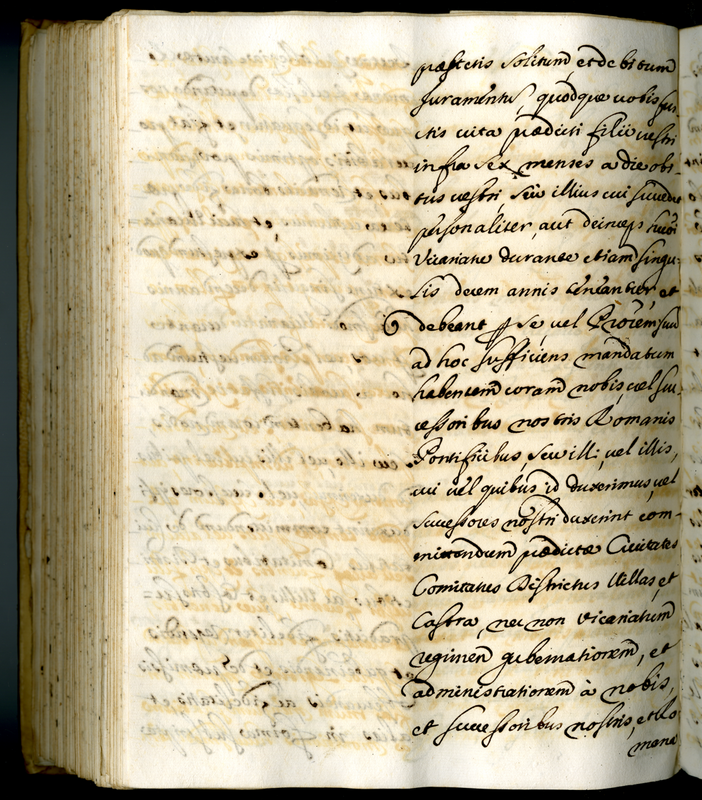 præstetis solitum, et debitum
Juramentũ, quodque vobis fun-
ctis vita prædicti filii vestri
infra sex menses a die obi-
tus vestri seu illius cui succedet
personaliter, aut deinceps
Vicariatu durante etiam singu-
lis decem annis teneantur, et
debeant ꝑ se, vel Prõrem suũ
ad hoc sufficiens mandatum
habentem coram nobis, vel suc-
cessoribus nostris Romanis
Pontificibus, seu illi, vel illis,
cui vel quibus id duxerimus, vel
successores nostri duxerint com-
mittendum prædictæ Civitates
Comitatus Districtus Villas, et
Castra, nec non Vicariatum
regimen gubernationem, et
administrationem à nobis,
et successoribus nostris, et Ro
mana